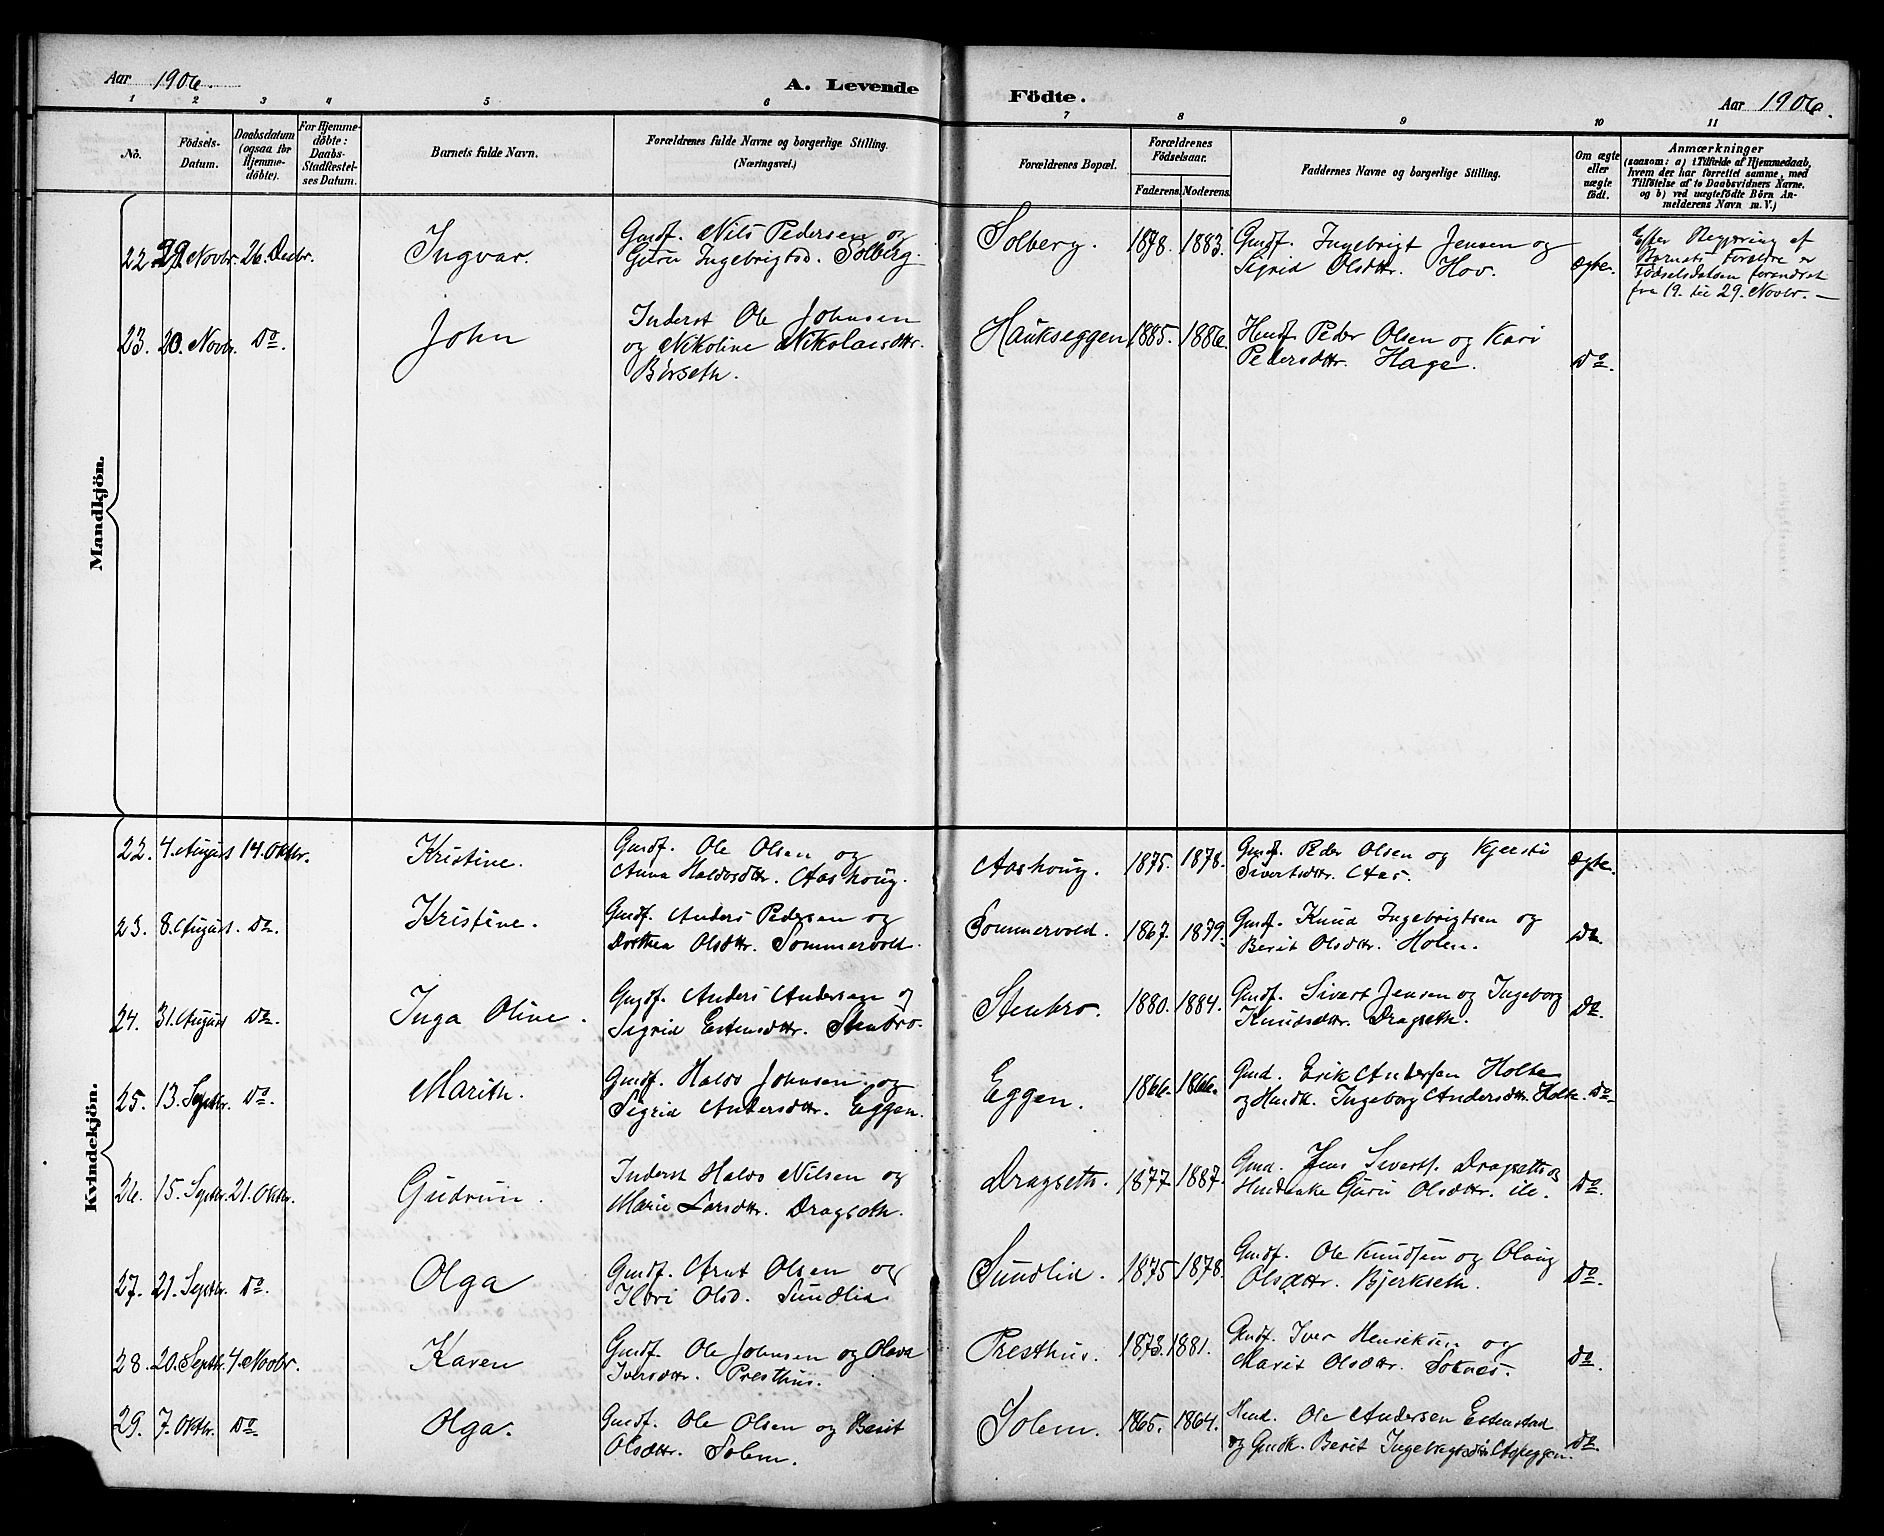 Aar 1906.
A. Levende Födte.
Aar 1906.
1 2 3 4 5 6 7 8 9 10 11
No.
Födsels-
Datum.
Daabsdatum
(ogsaa for
Hjemme-
döbte).
For Hjemme-
döbte:
Daabs-
Stadfæstel-
ses Datum.
Barnets fulde Navn.
Forældrenes fulde Navne og borgerlige Stilling.
(Næringsvei.)
Forældrenes Bopæl.
Forældrenes
Födselsaar.
Faderens. Moderens.
Faddernes Navne og borgerlige Stilling.
Om ægte
eller
uægte
födt.
Anmærkninger
(saasom: a) i Tilfælde af Hjemmedaab,
hvem der har forrettet samme, med
Tilföielse af to Daabsvidners Navne,
og b) ved uægtefödte Börn An-
melderens Navn m. V.)
Mandkjön.
22. 29. Novbr. 26. Decbr. Ingvar.
Gmdf. Nils Pedersen og
Guru Ingebrigtsd. Solberg.
Solberg. 1878. 1883.
Gmdf. Ingebrigt Jensen og
Sigrid Olsdttr. Hov.
Ægte.
Efter Begjæring af
Barnets Forældre er
Födselsdatoen forandret
fra 19. til 29. Novbr. —
23. 20. Novbr. Do. John
Inderst Ole Johnsen
og Nikoline Nikolaisdttr.
Börseth.
Haukseggen 1885. 1886.
Hmdf. Peder Olsen og Kari
Pedersdttr. Hage.
Do.
Kvindekjön.
22. 4. August 14. Oktbr. Kristine.
Gmdf. Ole Olsen og
Anna Haldosdttr. Aashoug.
Aashoug. 1875. 1878.
Gmdf. Peder Olsen og Kjersti
Sivertsdttr. Aas.
Ægte.
23. 8. August. Do. Kristine.
Gmdf. Anders Pedersen og
Dorthea Olsdttr. Sommervold.
Sommervold. 1867. 1879.
Gmdf. Knud Ingebrigtsen og
Berit Olsdttr. Holen.
Do.
24. 31. August Do. Inga Oline.
Gmdf. Anders Andersen og
Sigrid Estensdttr. Stenbro.
Stenbro. 1880. 1884.
Gmdf. Sivert Jensen og Ingeborg
Knudsdttr. Dragseth.
Do.
25. 13. Septbr. Do. Marith.
Gmdf. Haldo Johnsen og
Sigrid Andersdttr. Eggen.
Eggen. 1866. 1866.
Gmd. Erik Andersen Holte
og Hmdk. Ingeborg Andersdttr. Holte.
Do.
26. 15. Septbr. 21. Oktbr. Gudrun.
Inderst Haldo Nilsen og
Marie Larsdttr. Dragseth.
Dragseth. 1877. 1887.
Gmd. Jens Sivertf. Dragseth og
Guru Olsdttr. ile.
Do.
27. 21. Septbr. Do. Olga
Gmdf. Arnt Olsen og
Olsd. Sundlia
Sundlid. 1875. 1878.
Gmdf. Ole Knudsen og Olaug
Olsdttr. Bjerkseth.
Do.
28. 20. Septbr. 4. Novbr. Karen
Gmdf. Ole Johnsen og Olava
Iversdttr. Presthus.
Presthus. 1873. 1881.
Gmdf. Iver Henriksen og
Marit Olsdttr. Soknes.
Do.
29. 7. Oktbr. Do. Olga.
Gmdf. Ole Olsen og Berit
Olsdttr. Solem.
Solem. 1865. 1864.
Hmd. Ole Andersen Estenstad
og Gmdk. Berit
Do.